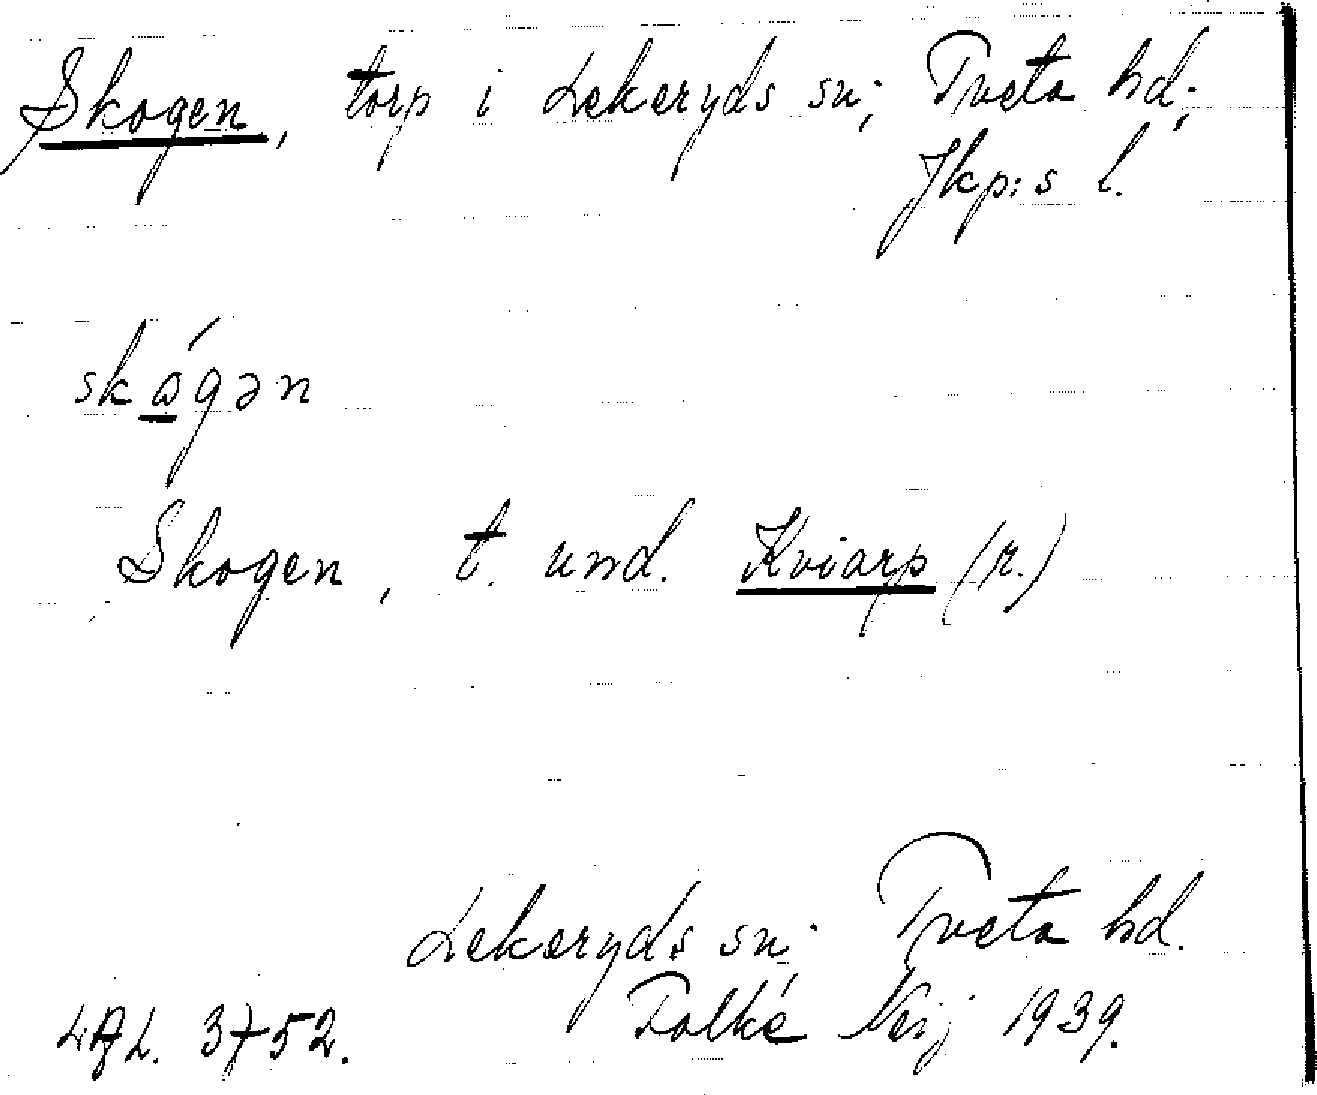 Skogen, torp i Lekeryds sn; Tveta hd;
Jkp:s l.
skógən
Skogen, t. und. Kviarp (r.)
Lekeryds sn; Tveta hd.
LAL. 3752. Folke Neij 1939.